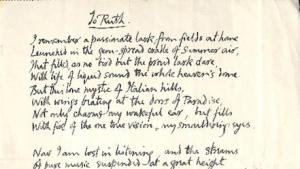 To Ruth.
I remember a passionate lark from fields at home
Launched in the gem-spread candle of Summer air,
That filled, as no bird but the proud lark dare,
With life of liquid sound the whole heaven's dome
But this lone mystic of Italian hills,
With wings beating at the doors of Paradise,
Not only charms my wakeful ear, but fills
With fire of the one true vision, my smouldering eyes.
Now I am lost in listening and the streams
of pure music suspended at a great height